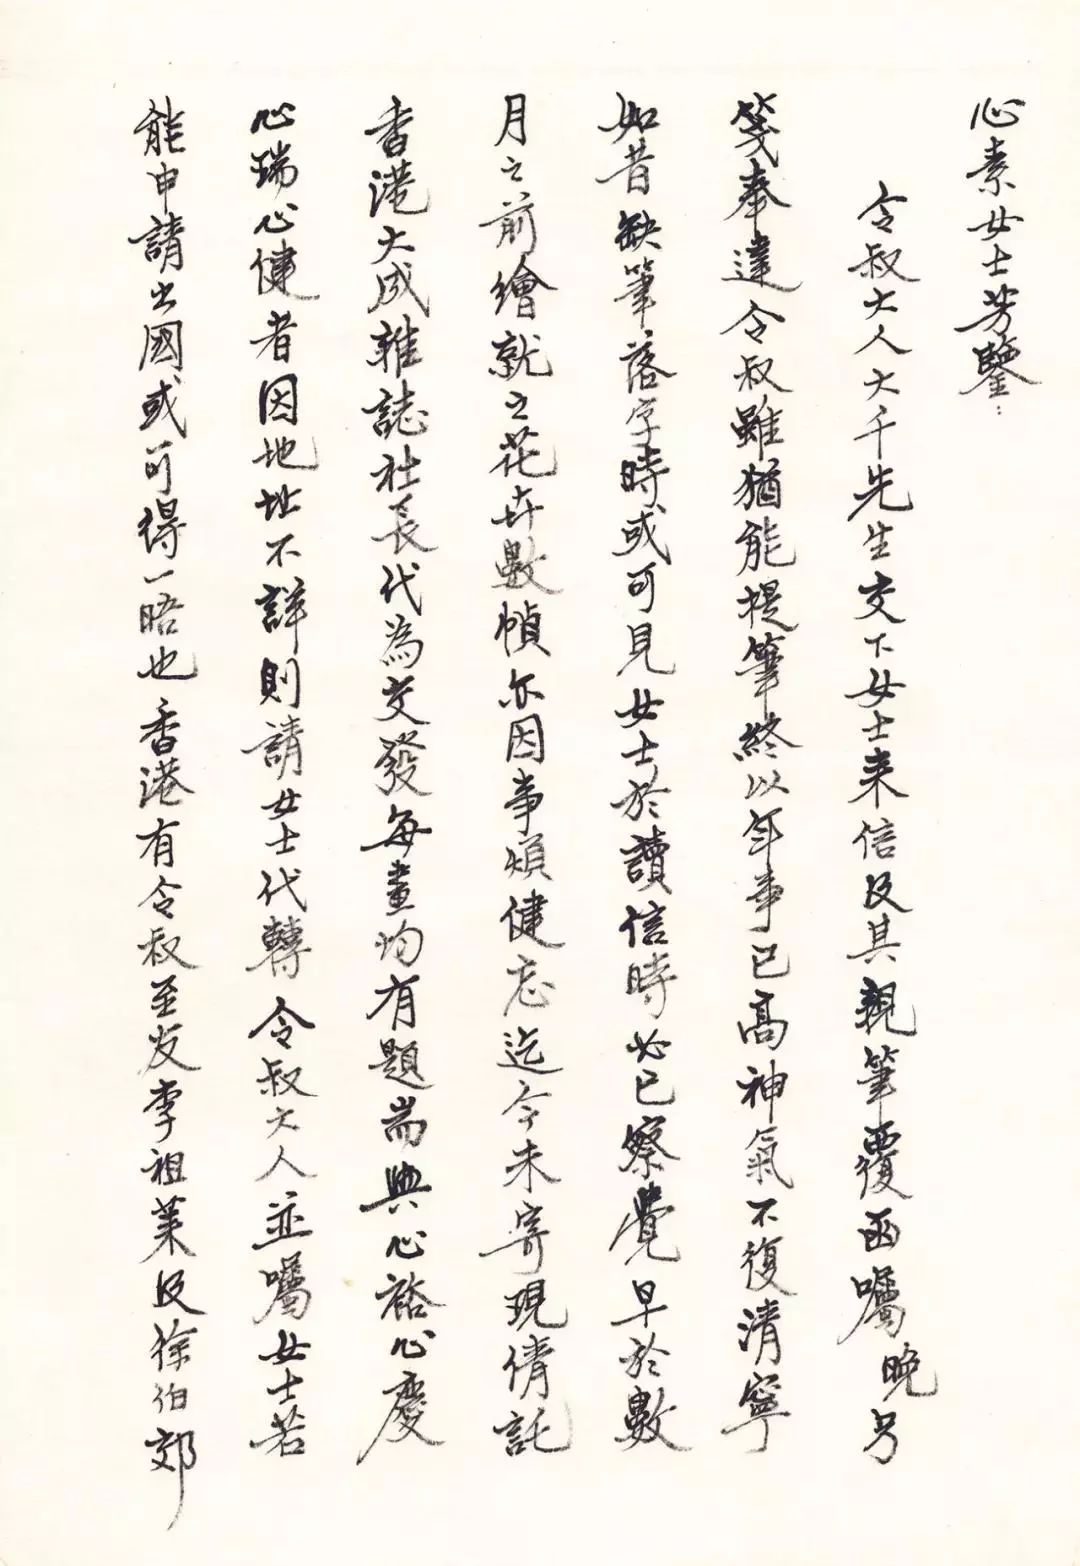 心素女士芳鑒：
令叔大人大千先生交下女士来信及其親筆覆函囑晚另
箋奉達令叔雖猶能提筆終以年事已高神氣不復清寧
如昔缺筆落字時或可見女士於讀信時必已察覺早於數
月之前繪就之花卉數幀亦因事煩健忘迄今未寄現倩託
香港大成雜誌社長代為交發每畫均有題耑與心裕心慶
心瑞心健者因地址不詳則請女士代轉令叔大人並囑女士若
能申請出國或可得一晤也香港有令叔至友李祖萊及徐伯郊